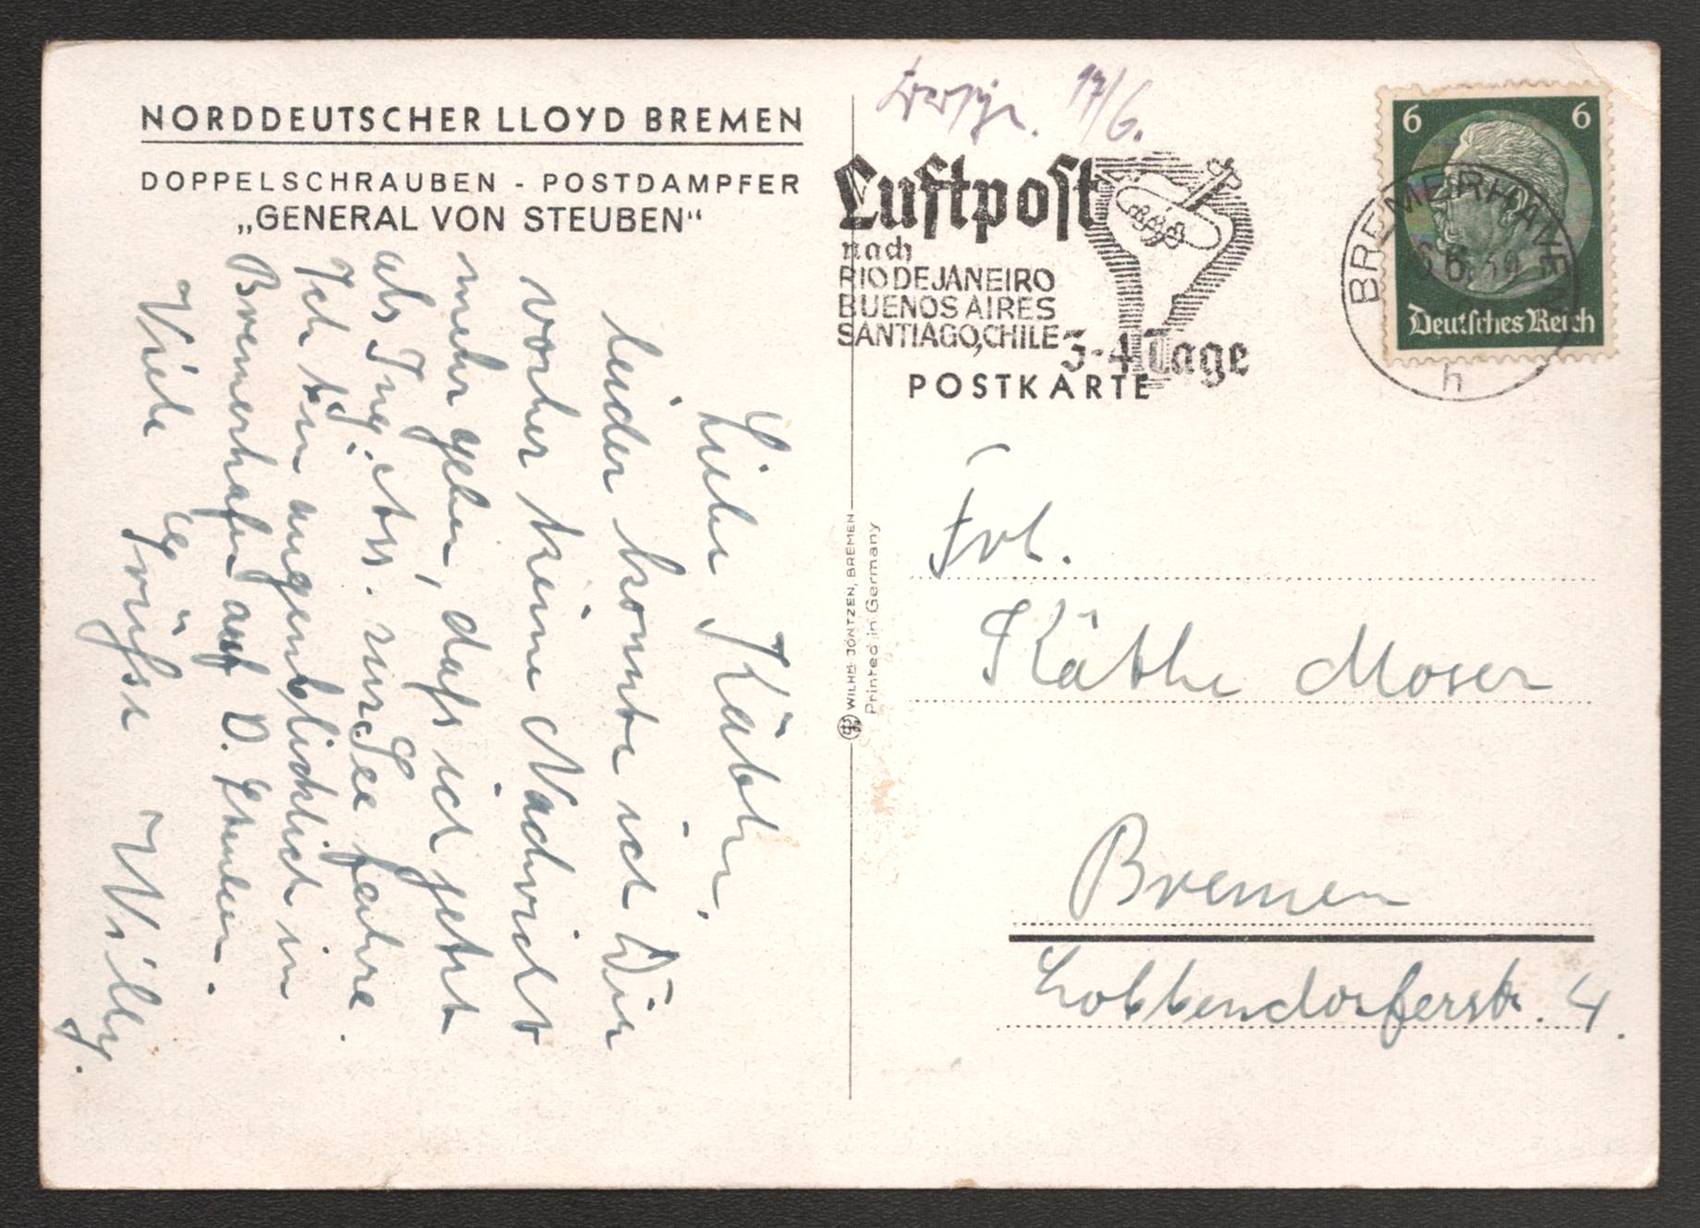 NORDDEUTSCHER LLOYD BREMEN
DOPPELSCHRAUBEN - POSTDAMPFER
„GENERAL VON STEUBEN“
Liebe Käthe,
leider konnte ich Dir
vorher keine Nachricht
mehr geben, daß ich jetzt
als Ing. Ass. zur See fahre.
Ich bin augenblicklich in
Bremerhafen auf D. Steuben.
Viele Grüße Willy.
17/6.
Luftpost
nach
RIO DE JANEIRO
BUENOS AIRES
SANTIAGO, CHILE 3-4 Tage
POSTKARTE
6 6
Deutsches Reich
BREMERHAVEN
h
WILHM JÖNTZEN, BREMEN
Printed in Germany
Frl.
Käthe Moser
Bremen
Lobbendorferstr. 4.